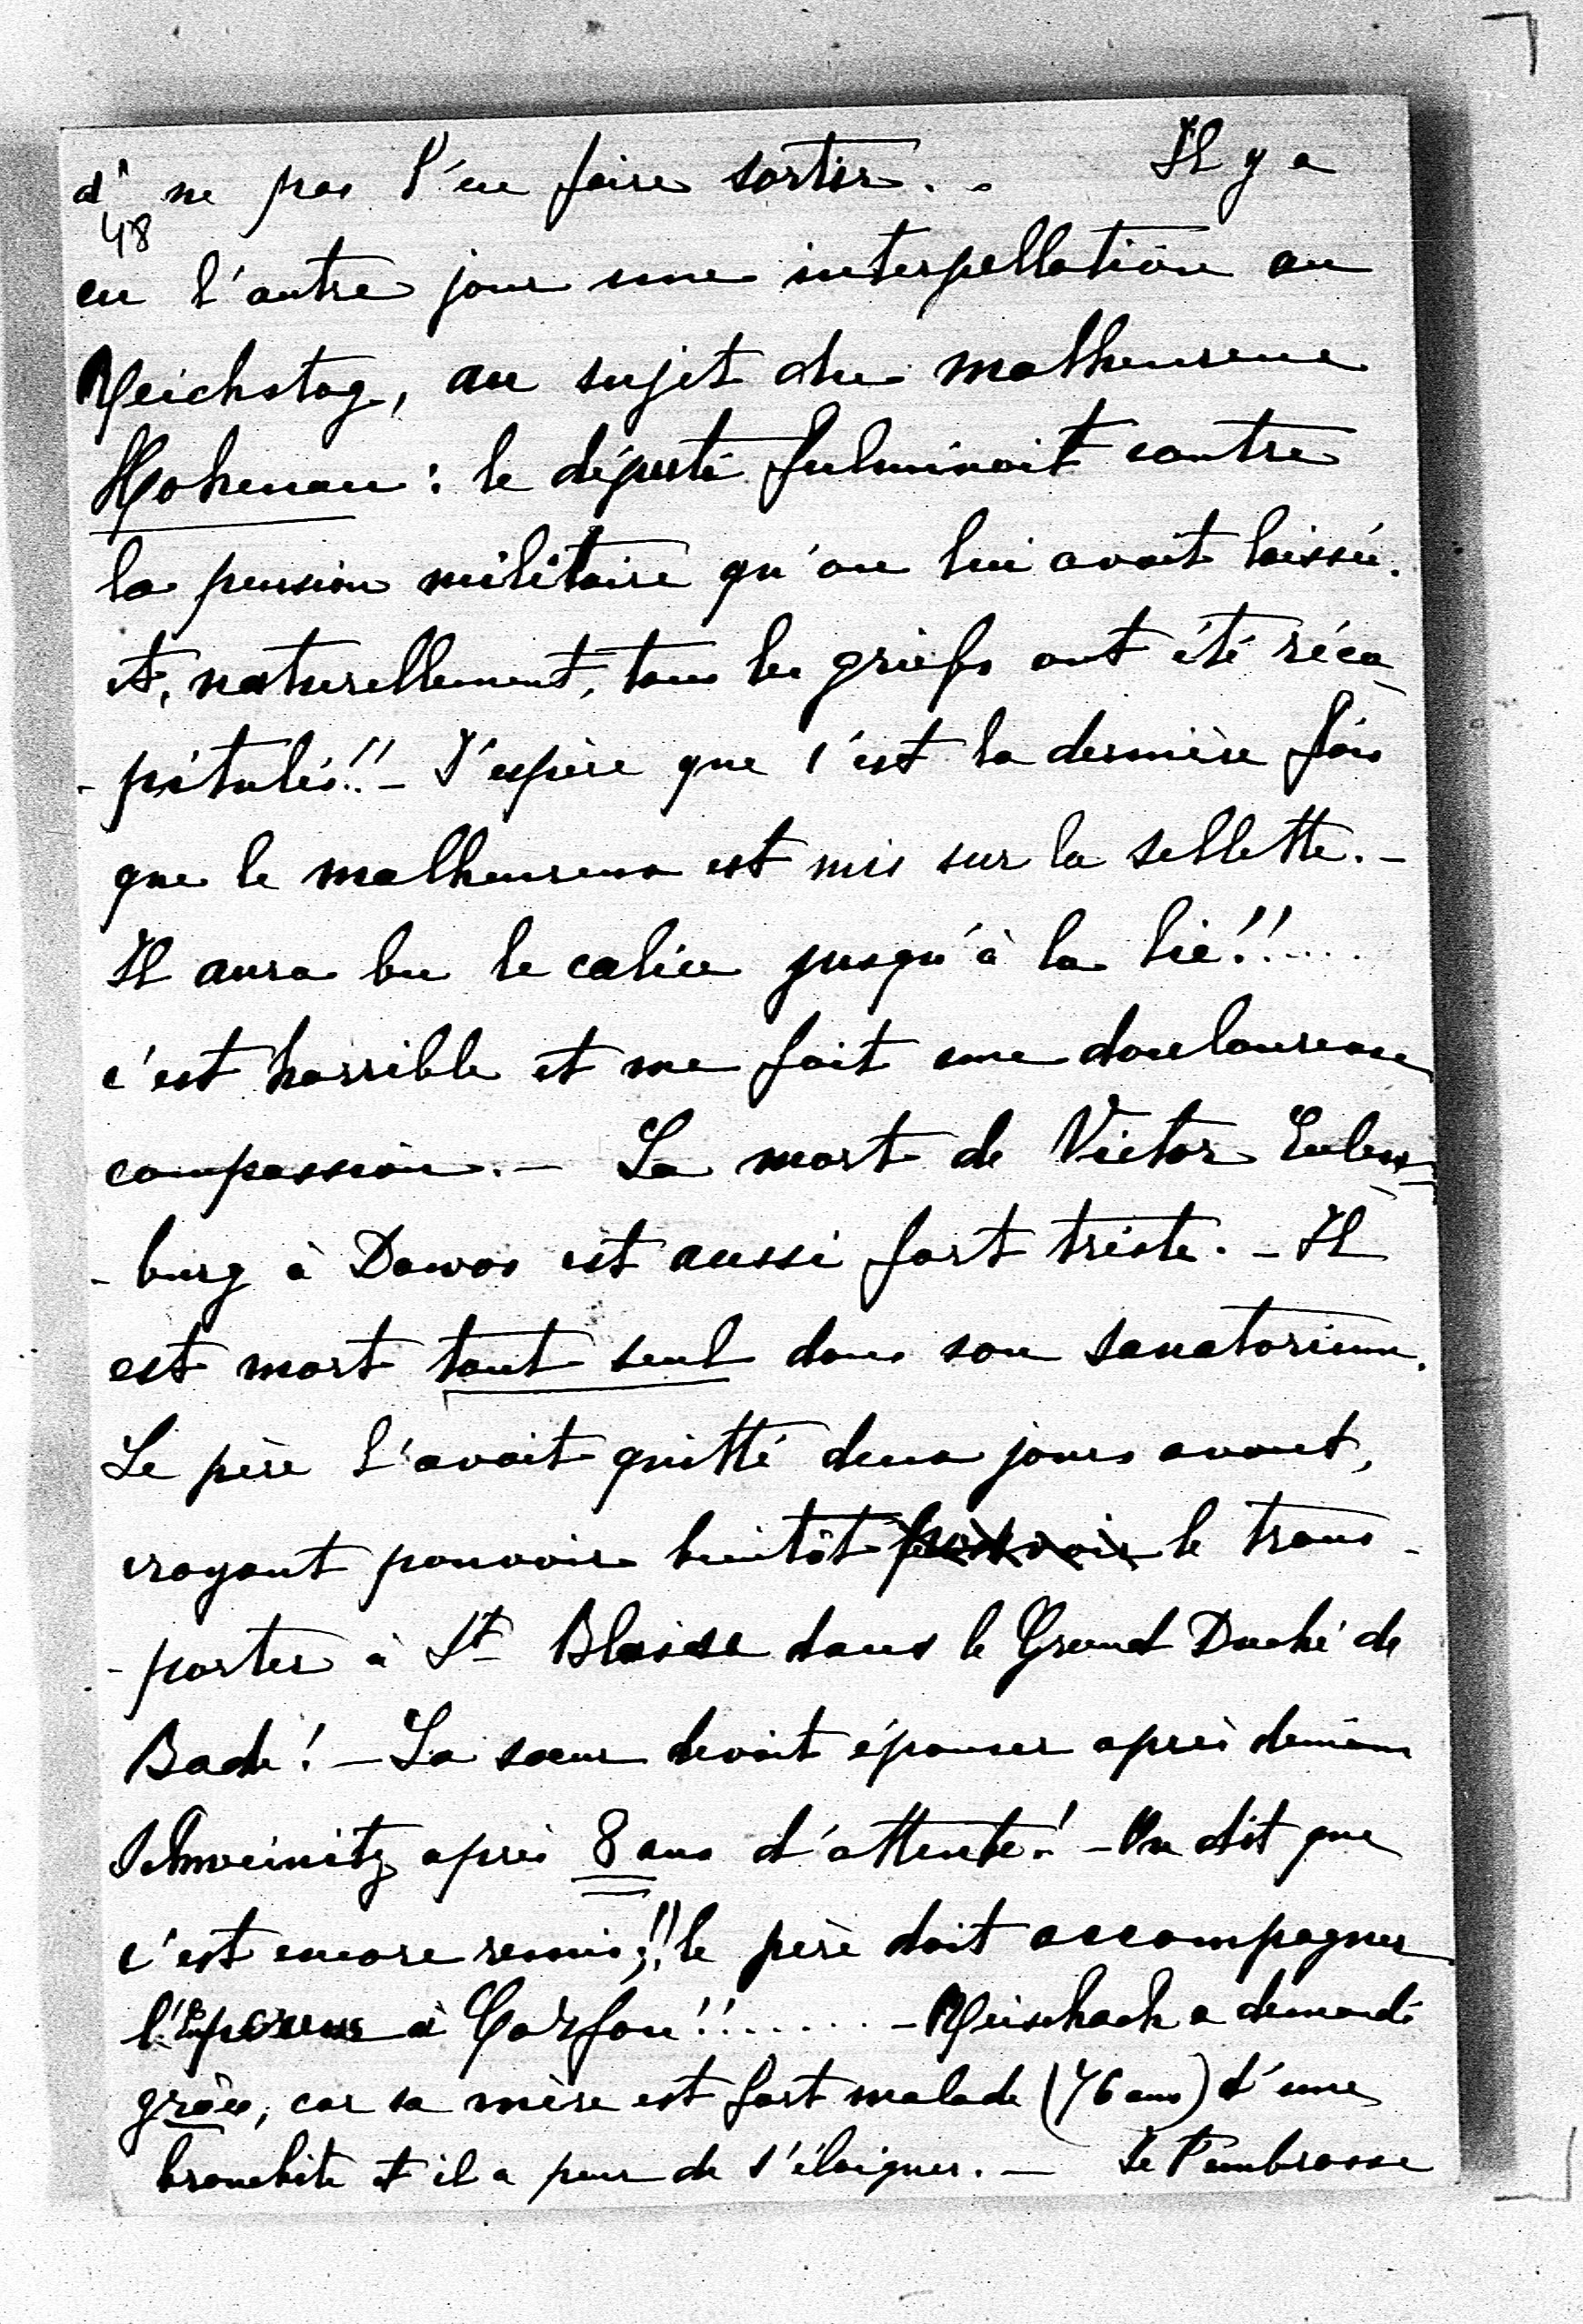 d' ne pas l'en faire sortir. . Il y a
48
eu l'autre jour une interpellation au
Reichstag, au sujet du malheureux
Hohenau : le député fulminait contre
la pension militaire qu'on lui avait laissée.
et, naturellement, tous les griefs ont été réca-
-pitulés!! - J'espère que c'est la dernière fois
que le malheureux est mis sur la sellette. -
Il aura bu le calice jusqu'à la lie!! ....
c'est horrible et me fait une douloureuse
compassion. - La mort de Victor Eulen=
-burg à Davos est aussi fort triste. - Il
est mort tout seul dans son sanatorium.
Le père l'avait quitté deux jours avant,
croyant pouvoir bientôt le trans-
-porter à St Blaise dans le Grand Duché de
Bade! - La sœur devait épouser après demain
Schweinitz après 8 ans d'attente! - On dit que
c'est encore remis;!! le père doit accompagner
l'Empereur à Corfou!! ....... - Reischach a demandé
grâce, car sa mère est fort malade (76 ans) d'une
bronchite et il a peur de s'éloigner. - Je t'embrasse